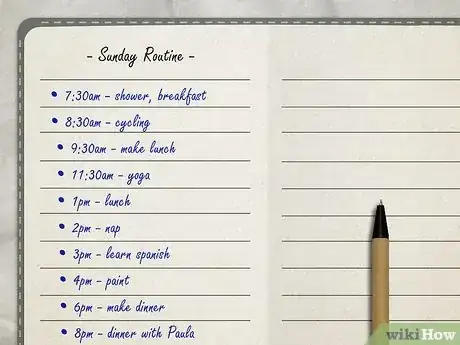 - Sunday Routine -
• 7:30am - shower, breakfast
• 8:30am - cycling
• 9:30am - make lunch
• 11:30am - yoga
• 1pm - lunch
• 2pm - nap
• 3pm - learn spanish
• 4pm - paint
• 6pm - make dinner
• 8pm - dinner with Paula
wikiHow